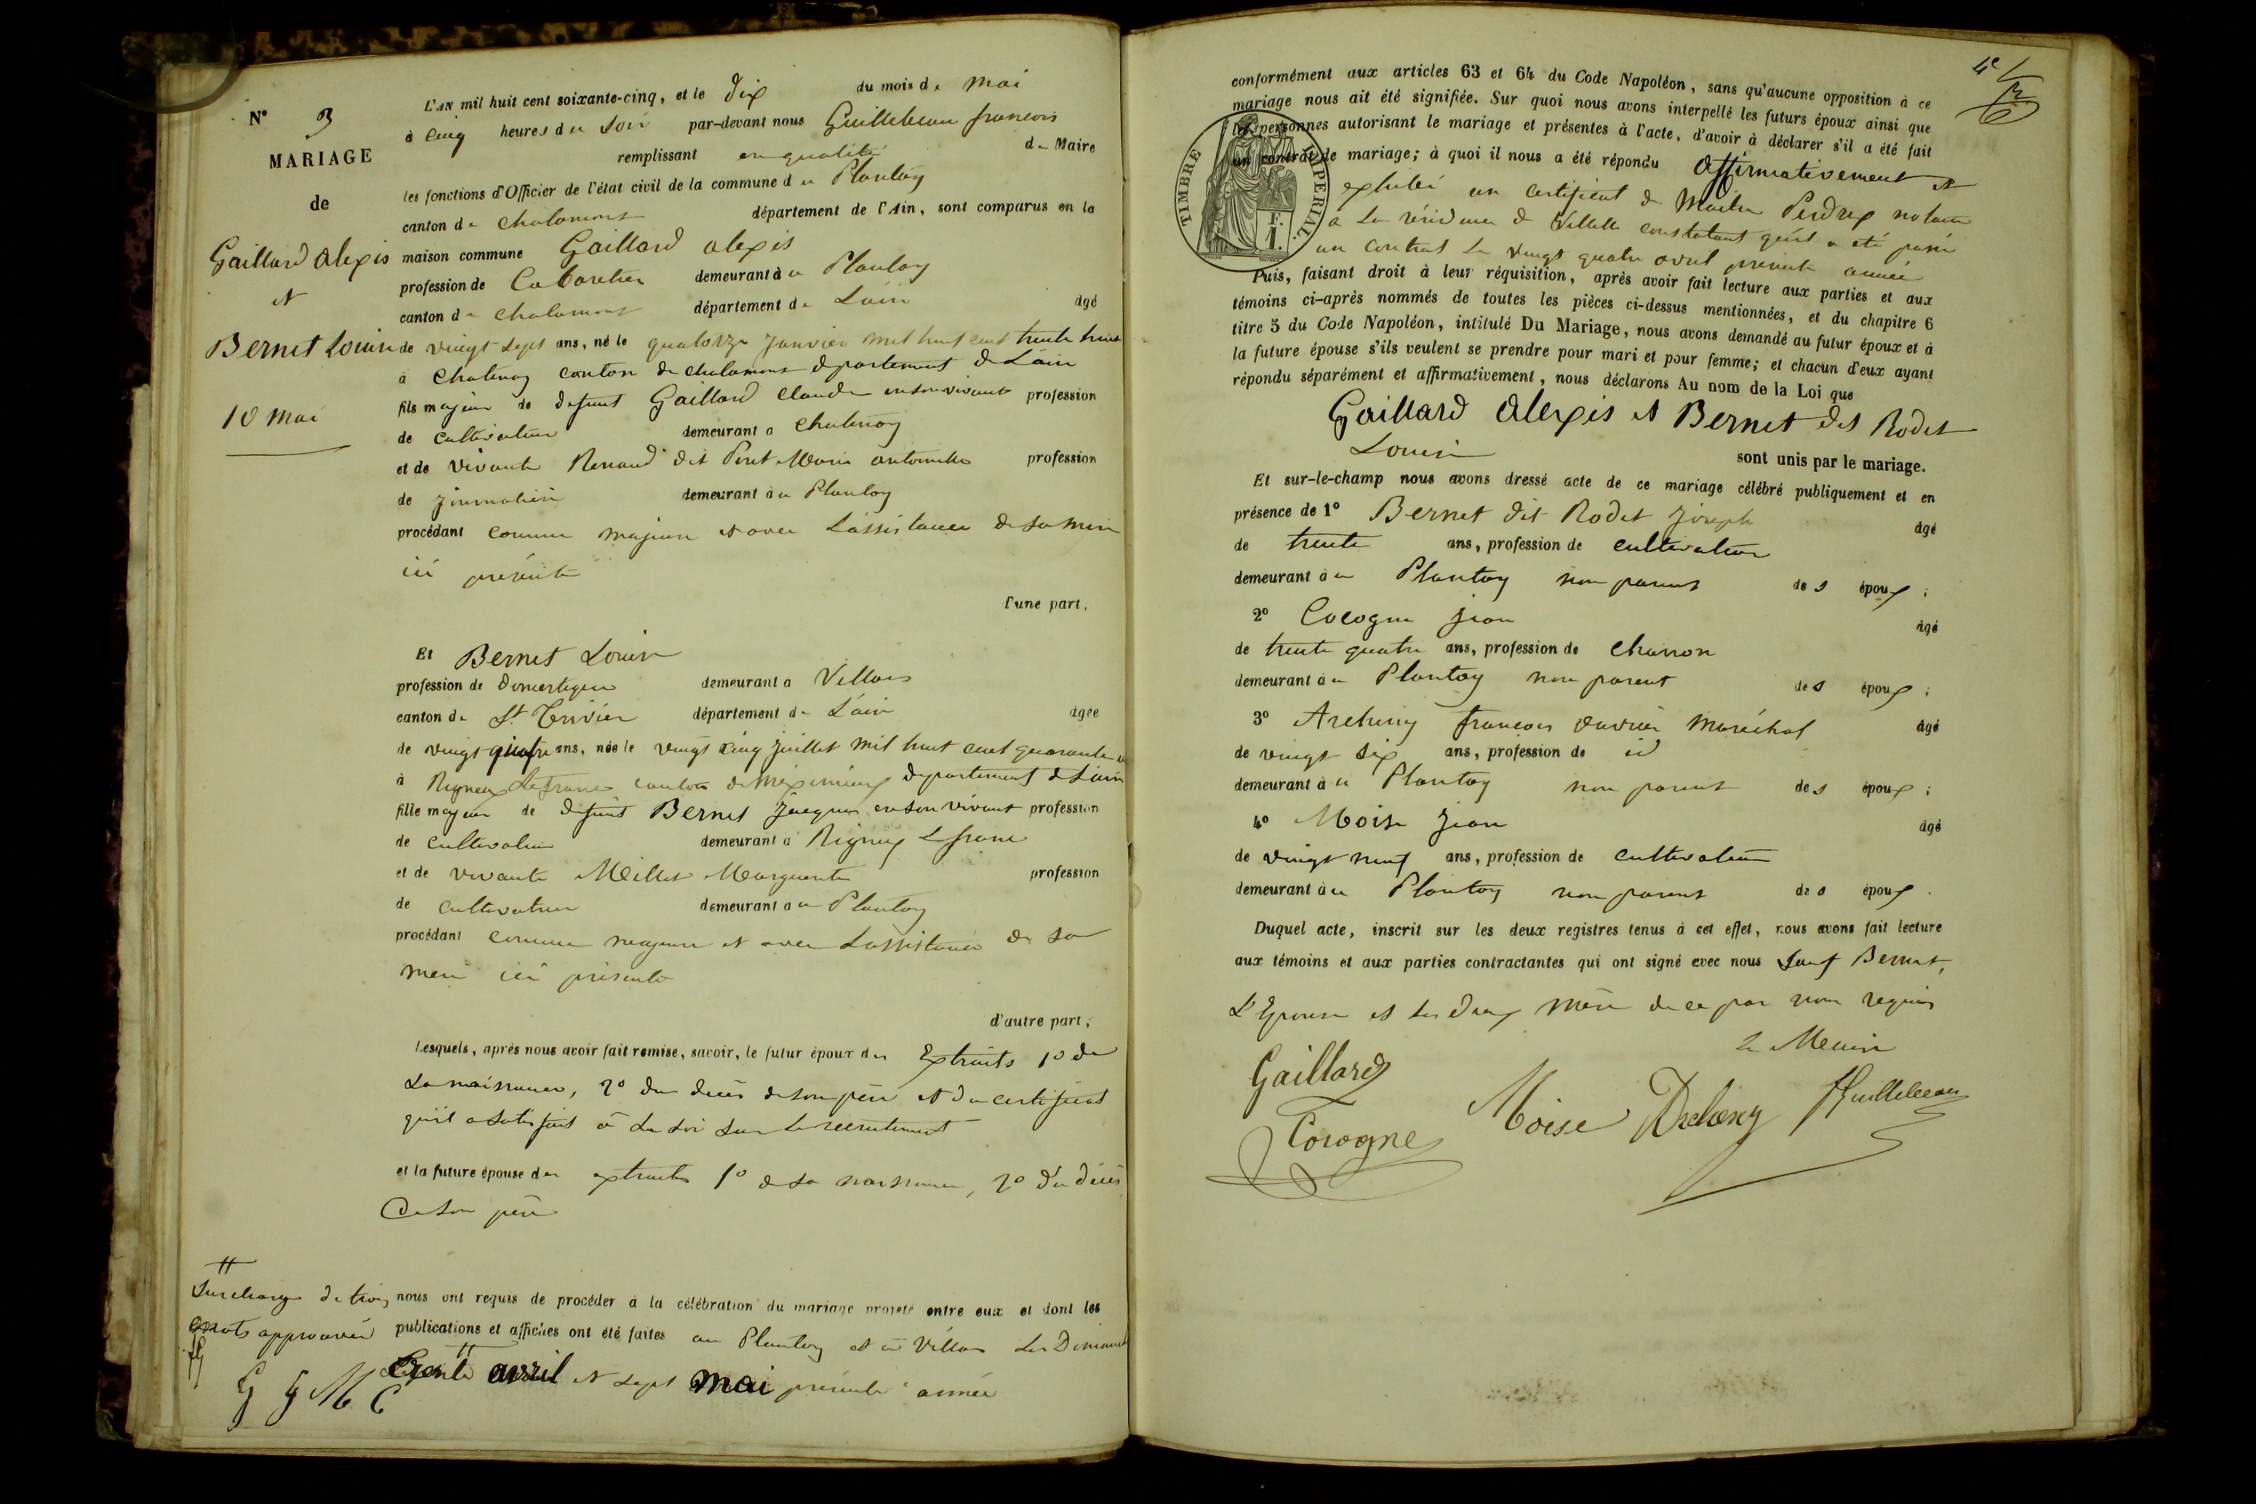 N° 3
MARIAGE
de
Gaillard Alexis
et
Bernet Louise
10 mai
L'AN mil huit cent soixante-cinq, et le dix du mois de mai
à cinq heures du soir par-devant nous Guillebeau francois
remplissant en qualité de Maire
les fonctions d'Officier de l'état civil de la commune du Plantay
canton de chalamont département de l'Ain, sont comparus en la
maison commune Gaillard alexis
profession de Cabaretier demeurant à u Plantay
canton de chalamont département de L'ain âgé
de vingt sept ans, né le quatorze janvier mil huit cent trente huit
à Chatenay canton de chalamont departement de L'ain
fils majeur de defunt Gaillard Claude en son vivant profession
de cultivateur demeurant a chatenay
et de vivante Renaud dit Marie antoinette profession
de journalière demeurant à u Plantay
procédant comme majeur et avec L'assistance de sa mère
ici présente
l'une part,
Et Bernet Louise
profession de domestique demeurant a Villars
canton de St Trivier département de L'ain âgée
de vingt quatre ans, née le vingt cinq juillet mil huit cent quarante
à Rigneux Lefranc canton de Meximieux departement de L'ain
fille majeure de defunt Bernet Jacques en son vivant profession
de cultivateur demeurant a Rigneux Lefranc
et de vivante Millet Marguerite profession
de cultivateur demeurant a u Plantay
procédant comme majeure et avec L'assistance de sa
mère ici présente
d'autre part;
Lesquels, après nous avoir fait remise, savoir, le futur époux des Extraits 1° de
sa naissance, 2° du décès de son père et du certificat
qu'il a satisfait à la loi sur le recrutement
et la future épouse des extraits 1° de sa naissance, 2° du décès
de son père
Surcharge de trois
mots approuvée
G G M C
nous ont requis de procéder à la célébration du mariage projeté entre eux et dont les
publications et affiches ont été faites au Plantay et à Villars les Dimanches
trente avril et sept mai présente année
conformément aux articles 63 et 64 du Code Napoléon, sans qu'aucune opposition à ce
mariage nous ait été signifiée. Sur quoi nous avons interpellé les futurs époux ainsi que
les personnes autorisant le mariage et présentes à l'acte, d'avoir à déclarer s'il a été fait
un contrat de mariage; à quoi il nous a été répondu affirmativement et
TIMBRE IMPERIAL
exhibé un certificat de Maitre Perdrex notaire
à la résidence de Villette constatant qu'il a été passé
un contrat le vingt quatre avril présente année
Puis, faisant droit à leur réquisition, après avoir fait lecture aux parties et aux
témoins ci-après nommés de toutes les pièces ci-dessus mentionnées, et du chapitre 6
titre 5 du Code Napoléon, intitulé Du Mariage, nous avons demandé au futur époux et à
la future épouse s'ils veulent se prendre pour mari et pour femme; et chacun d'eux ayant
répondu séparément et affirmativement, nous déclarons Au nom de la Loi que
Gaillard Alexis et Bernet dit Rodet
Louise
sont unis par le mariage.
Et sur-le-champ nous avons dressé acte de ce mariage célébré publiquement et en
présence de 1° Bernet dit Rodet Joseph âgé
de trente ans, profession de cultivateur
demeurant à u Plantay non parent des époux;
2° Cocogne Jean âgé
de trente quatre ans, profession de charron
demeurant à u Plantay non parent des époux;
3° francois maréchal âgé
de vingt six ans, profession de id
demeurant à u Plantay non parent des époux;
4° Moise Jean âgé
de vingt neuf ans, profession de cultivateur
demeurant à u Plantay non parent des époux.
Duquel acte, inscrit sur les deux registres tenus à cet effet, nous avons fait lecture
aux témoins et aux parties contractantes qui ont signé avec nous sauf Bernet,
L'Epouse et les deux mère de ce par nous requis
Gaillard
Cocogne
Moise
Guillebeau